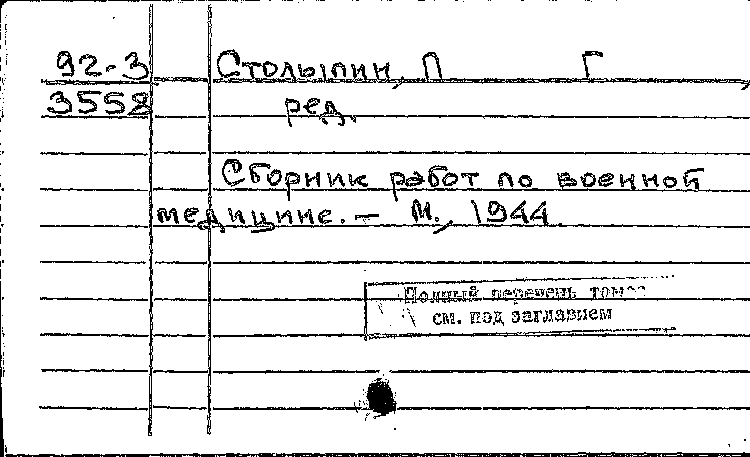 92-3 Столыпин, П Г
3558 ред.
Сборник работ по военной
медицине. — М., 1944
Полный перечень томов
см. под заглавием